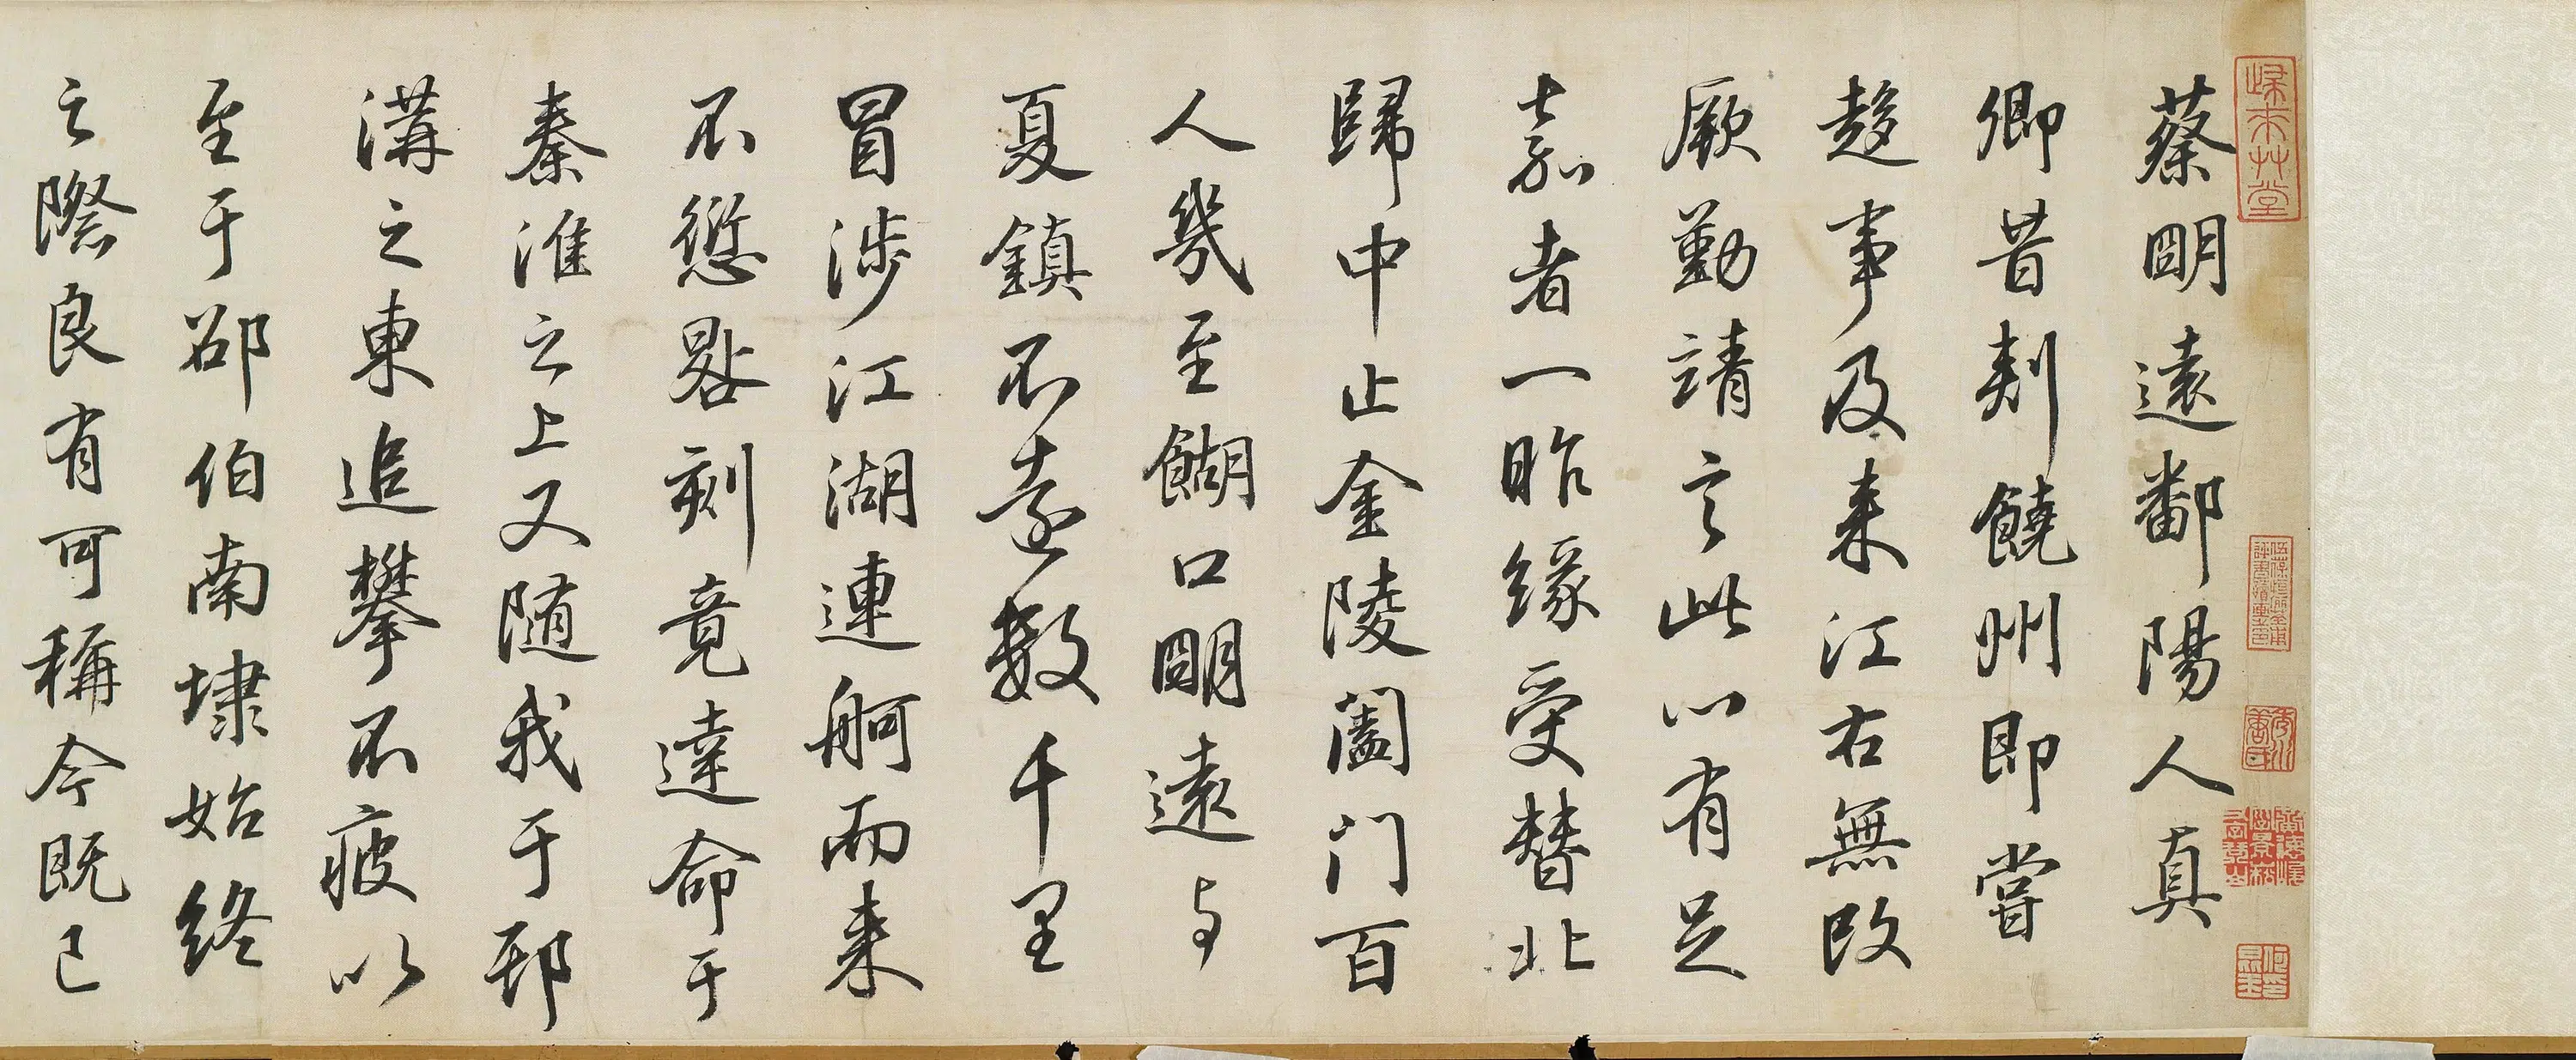 歸来艸堂
蔡明遠鄱陽人真
卿昔刾饒州即嘗
趍事及来江右無改
厥勤靖言此心有足
嘉者一昨緣受替北
歸中止金陵闔门百
人幾至餬口明遠与
夏鎮不遠數千里
冒涉江湖連舸而来
不愆晷刻竟達命于
秦淮之上又随我于邗
溝之東追攀不疲以
至于邵伯南埭始終
之際良有可稱今既已